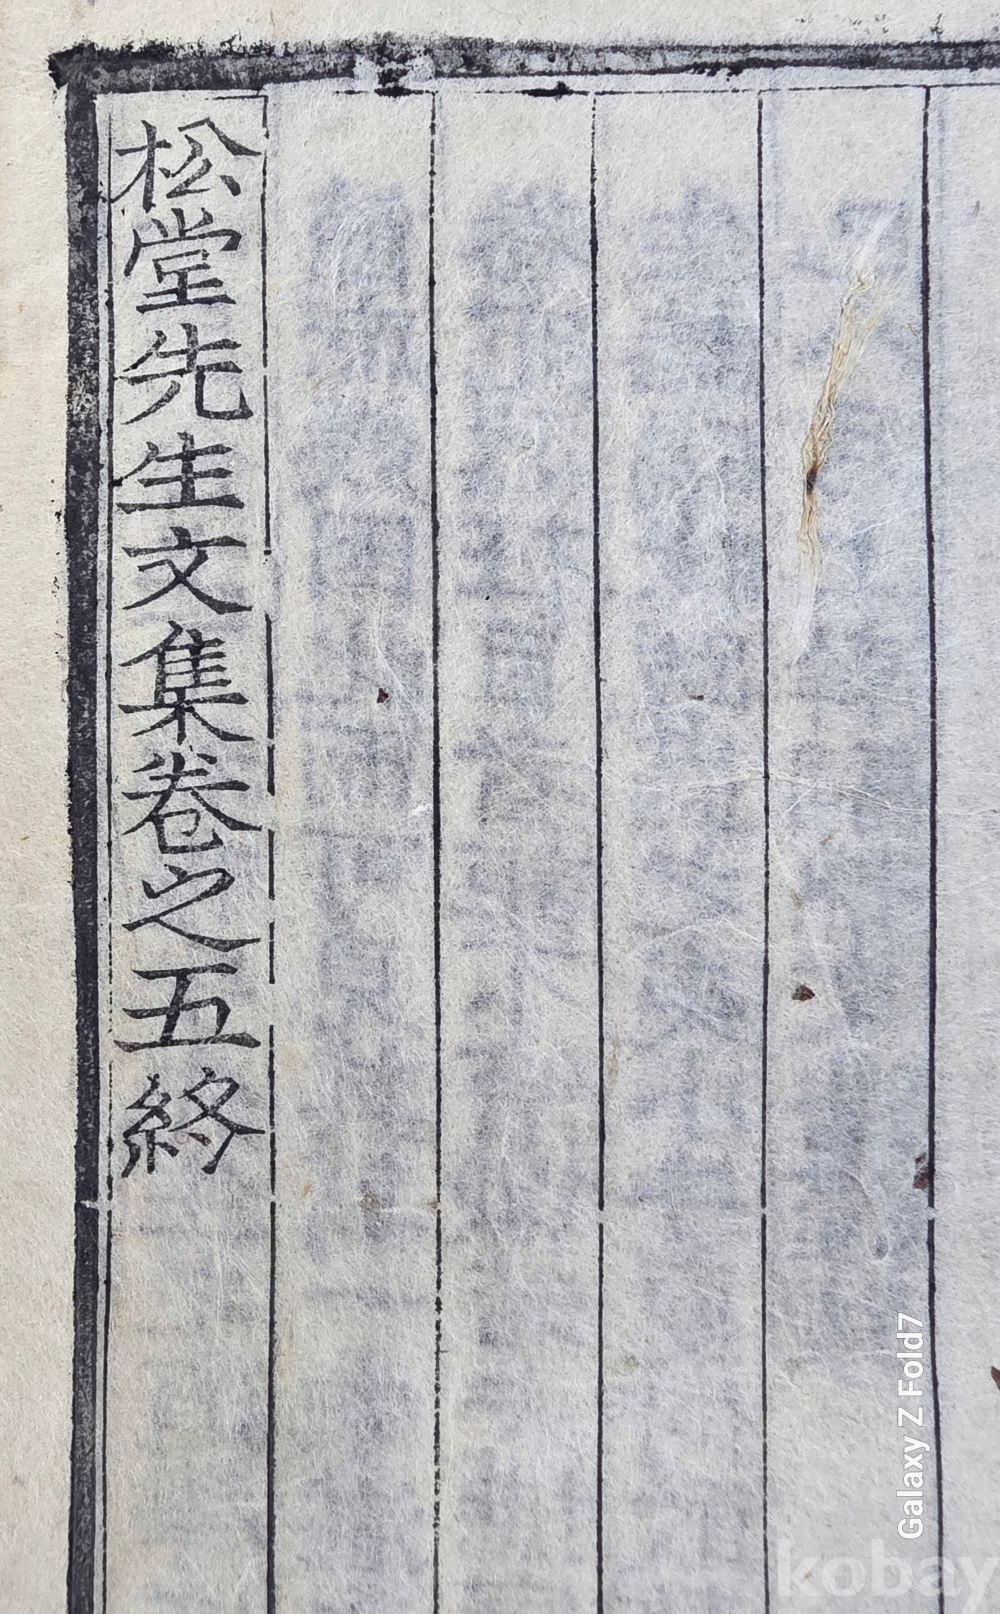 松堂先生文集卷之五終
Galaxy Z Fold7
kobay